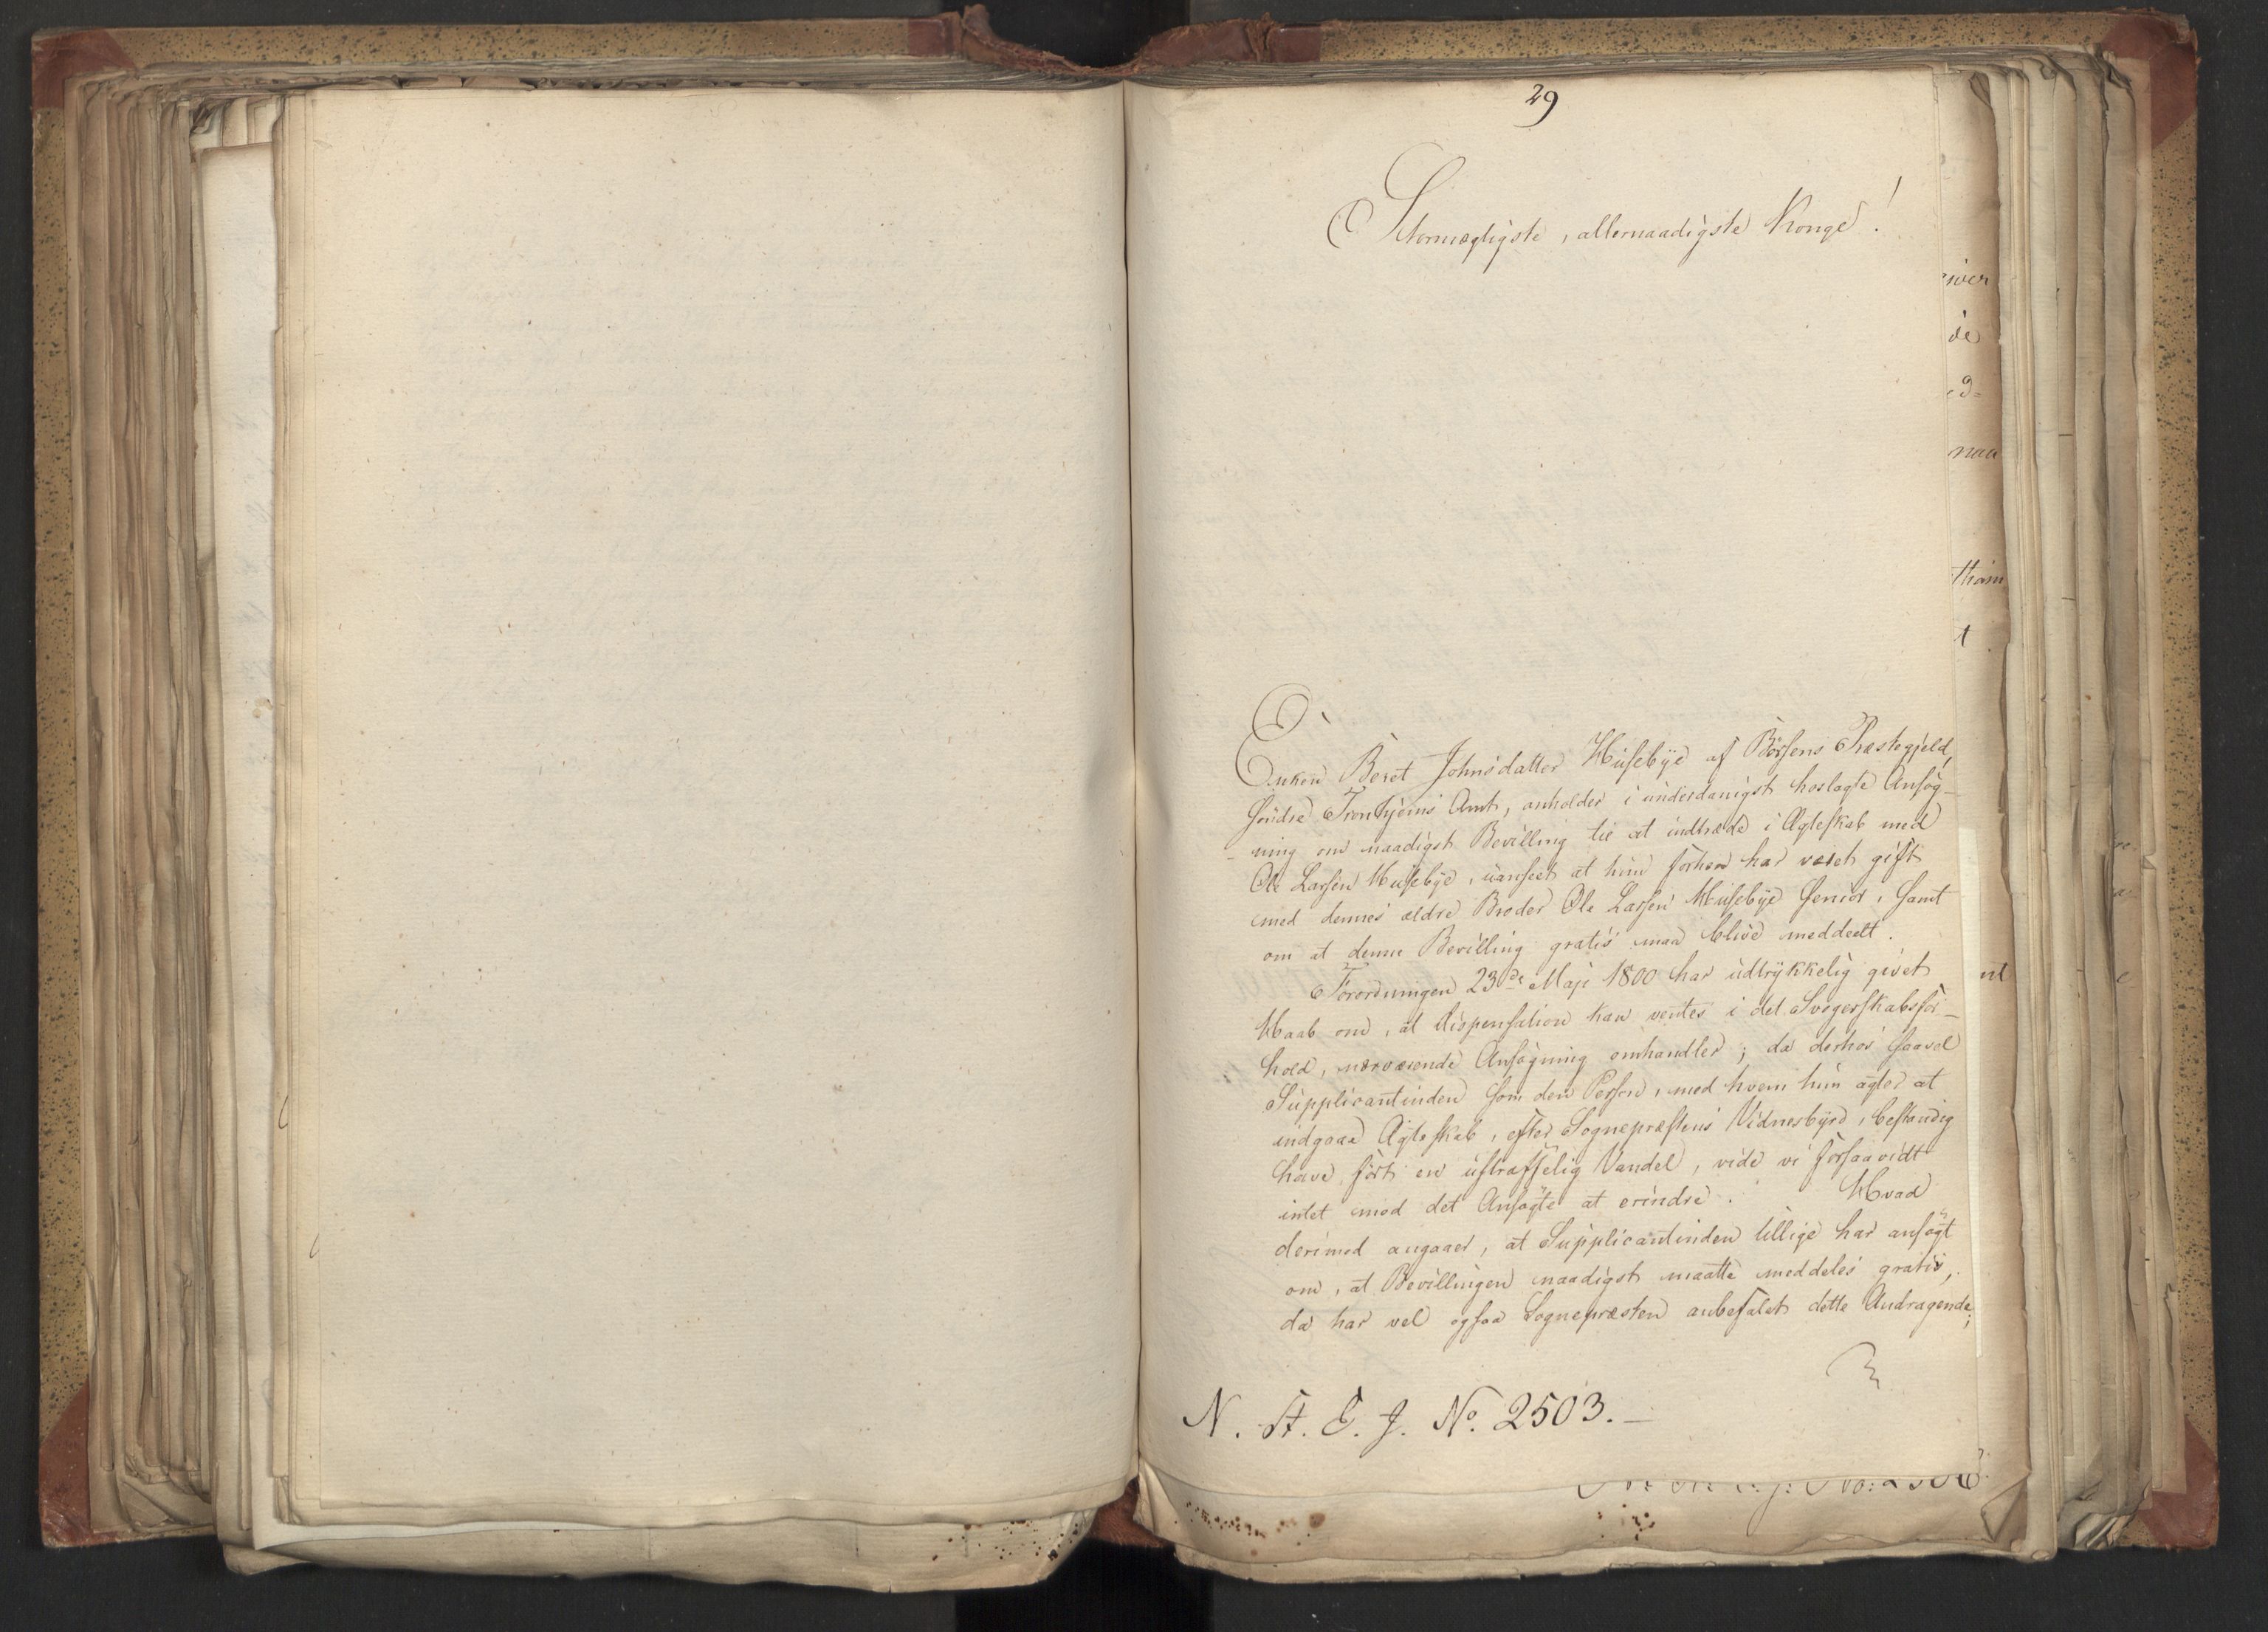 29
Stormægtigste, allernaadigste Konge!
Enken Beret Johnsdatter Husebÿe af Börsens Præstegjeld,
söndre Trondhjems Amt, anholder i underdanigst hoslagte Ansög-
-ning om naadigst Bevilling til at indtræde i Ægteskab med
Ole Larsen Husebÿe, uanseet at hun forhen har været gift
med dennes ældre Broder Ole Larsen Husebÿe senior, samt
om at denne Bevilling gratis maa blive meddeelt.
Forordningen 23de Maji 1800 har udtrÿkkelig givet
Haab om, at Dispensation kan ventes i det Svogerskabsfor-
hold, nærværende Ansögning omhandler; da derhos saavel
Supplicantinden som den Person, med hvem hun agter at
indgaae Ægteskab, efter Sognepræstens Vidnesbÿrd, bestandig
have fört en ustraffelig Vandel, vide vi forsaavidt
intet mod det Ansögte at erindre. Hvad
derimod angaaer, at Supplicantinden tillige har ansögt
om, at Bevillingen naadigst maatte meddeles gratis,
da har vel ogsaa Sognepræsten anbefalet dette Andragende;
N. St. E. J. No. 2503.-
nier
de
ed-
naa
t
et